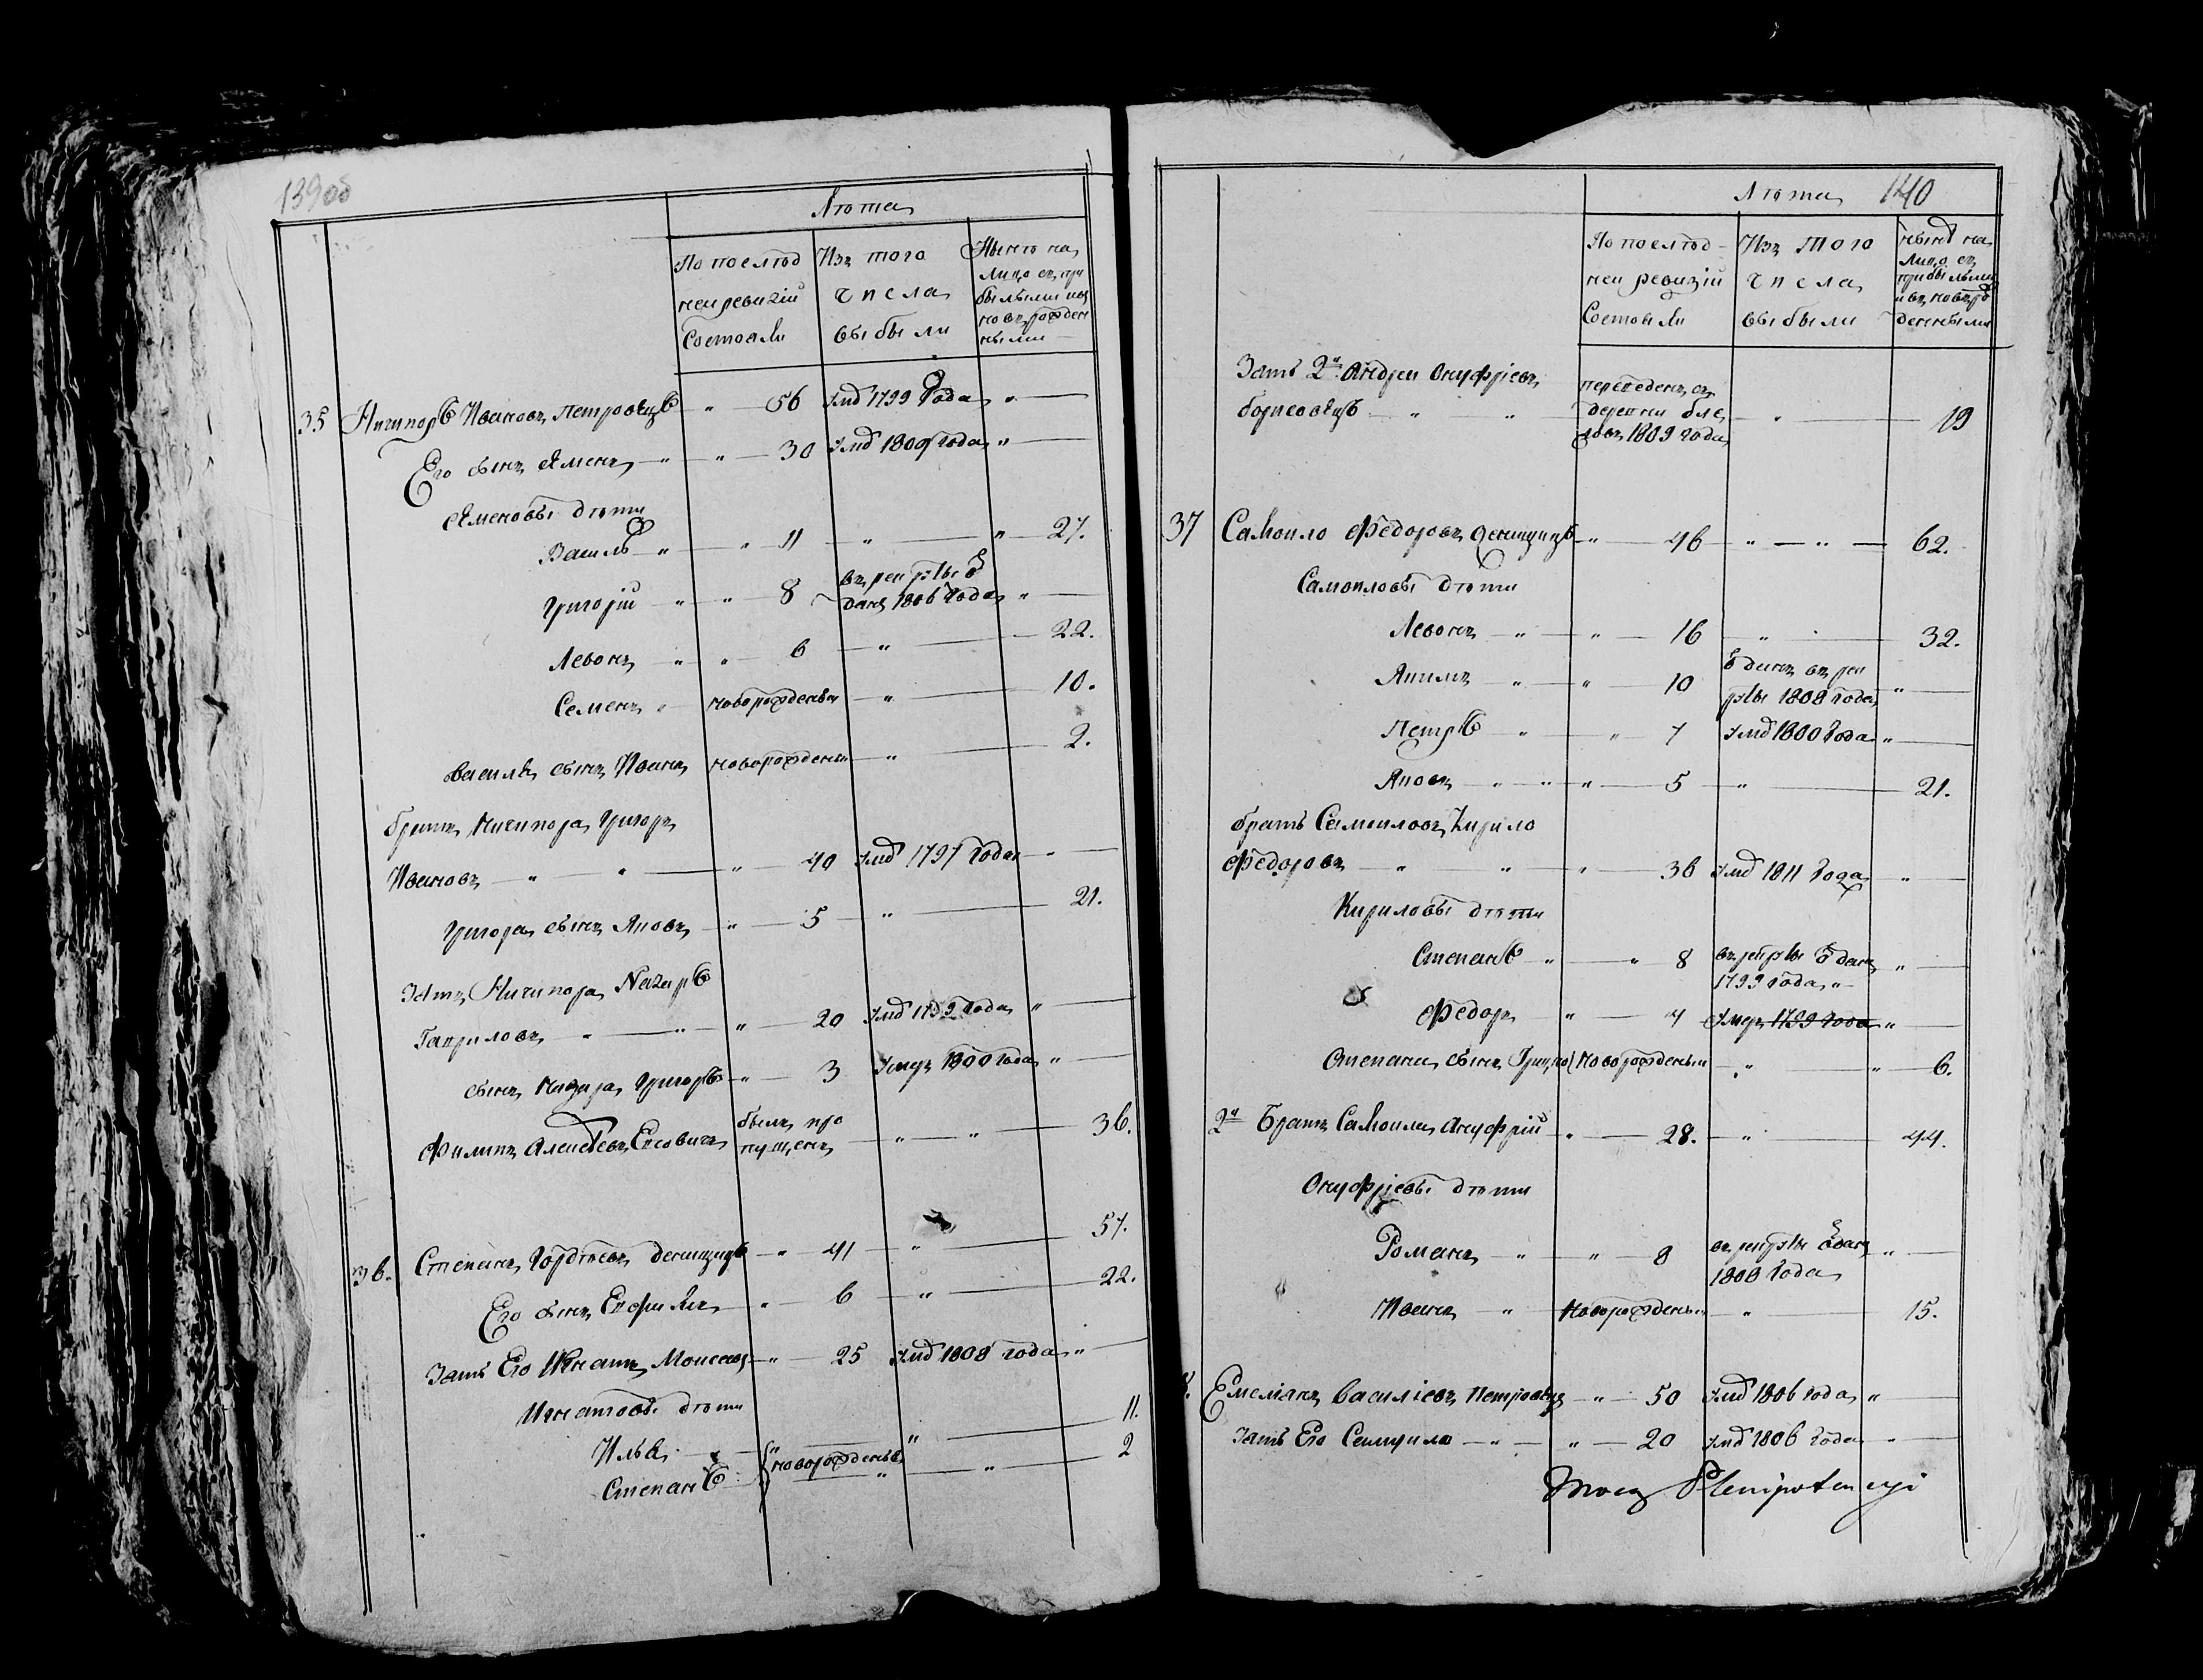 139об
Лѣта
По послѣд
ней ревизіи
состояли
Изъ того
числа
выбыли
Нынѣ на
лицо съ при
былыми и
новорожден
ными
35 Ничипоръ Ивановъ Петровецъ " 56 умѣ 1799 года "
Его сынъ Яменъ " " 30 умѣ 1809 года "
Яменовы дѣти
Василь " " 11 " " 27.
Григорій " " 8 въ рекруты о
данъ 1806 года "
Левонъ " " 6 " 22.
Семенъ " новорожденъ " 10.
Василя сынъ Иванъ новорожденъ " 2.
братъ Ничипора Григоръ
Ивановъ " " " 40 умѣ 1797 года "
Григора сынъ Яковъ " 5 " 21.
Зать Ничипора Назаръ
Гавриловъ " " " 20 умѣ 1799 года "
сынъ Назара Григоръ " 3 умеръ 1800 года "
Филипъ Алексѣевъ Есовичъ былъ про
пущенъ " " 36.
36. Степанъ Гордѣевъ Денищицъ " 41 " 57.
Его сынъ Ехфимъ " 6 " 22.
Зать Его Игнатъ Моисеевъ " 25 умѣ 1808 года "
Игнатовы дѣти
Илья " новорожденъ " 11.
Степанъ " " 2
140
Лѣта
По послѣд
ней ревизіи
состояли
Изъ того
числа
выбыли
нынѣ на
лицо съ
прибылыми
и новоро
денными
Зать 2й Андрей Онуфріевъ
борисовецъ " "
переведенъ съ
деревни
1809 года " 19
37 Самоило Федоровъ Денищицъ " 46 " " 62.
Самоиловы дѣти
Левонъ " " 16 " 32.
Якимъ " " 10 оданъ въ рек
руты 1808 года "
Петръ " " 7 умѣ 1800 года "
Яковъ " " " 5 " 21.
братъ Самоиловъ Кирило
Федоровъ " " " 36 умѣ 1811 года "
Кириловы дѣти
Степанъ " " 8 въ рекруты оданъ
1799 года "
Федоръ " 4 умеръ 1799 года "
Степана сынъ новорожденъ " " 6.
2й Братъ Самоила Онуфрій " 28. " 44.
Онуфріевы дѣти
Романъ " " 8 въ рекруты оданъ
1808 года "
Иванъ " новорожденъ " 15.
Емелянъ Василіевъ Петровецъ " 50 умѣ 1806 года "
Зать Его " " 20 умѣ 1806 года "
Mocą Plenipotencyi